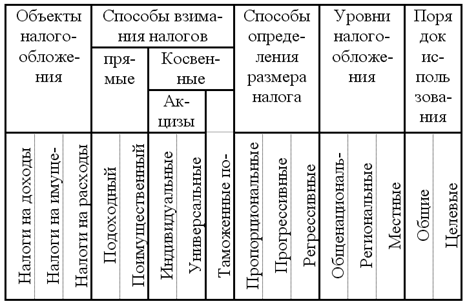 Объекты
налого-
обложе-
ния
Способы взима-
ния налогов
пря-
мые
Косвен-
ные
Ак-
цизы
Способы
опреде-
ления
размера
налога
Уровни
налого-
обложе-
ния
Поря
док
ис-
поль
зования
Налоги на доходы
Налоги на имуще-
Налоги на расходы
Подоходный
Поимущественный
Индивидуальные
Универсальные
Таможенные по-
Пропорциональные
Прогрессивные
Регрессивные
Общенациональ-
Региональные
Местные
Общие
Целевые